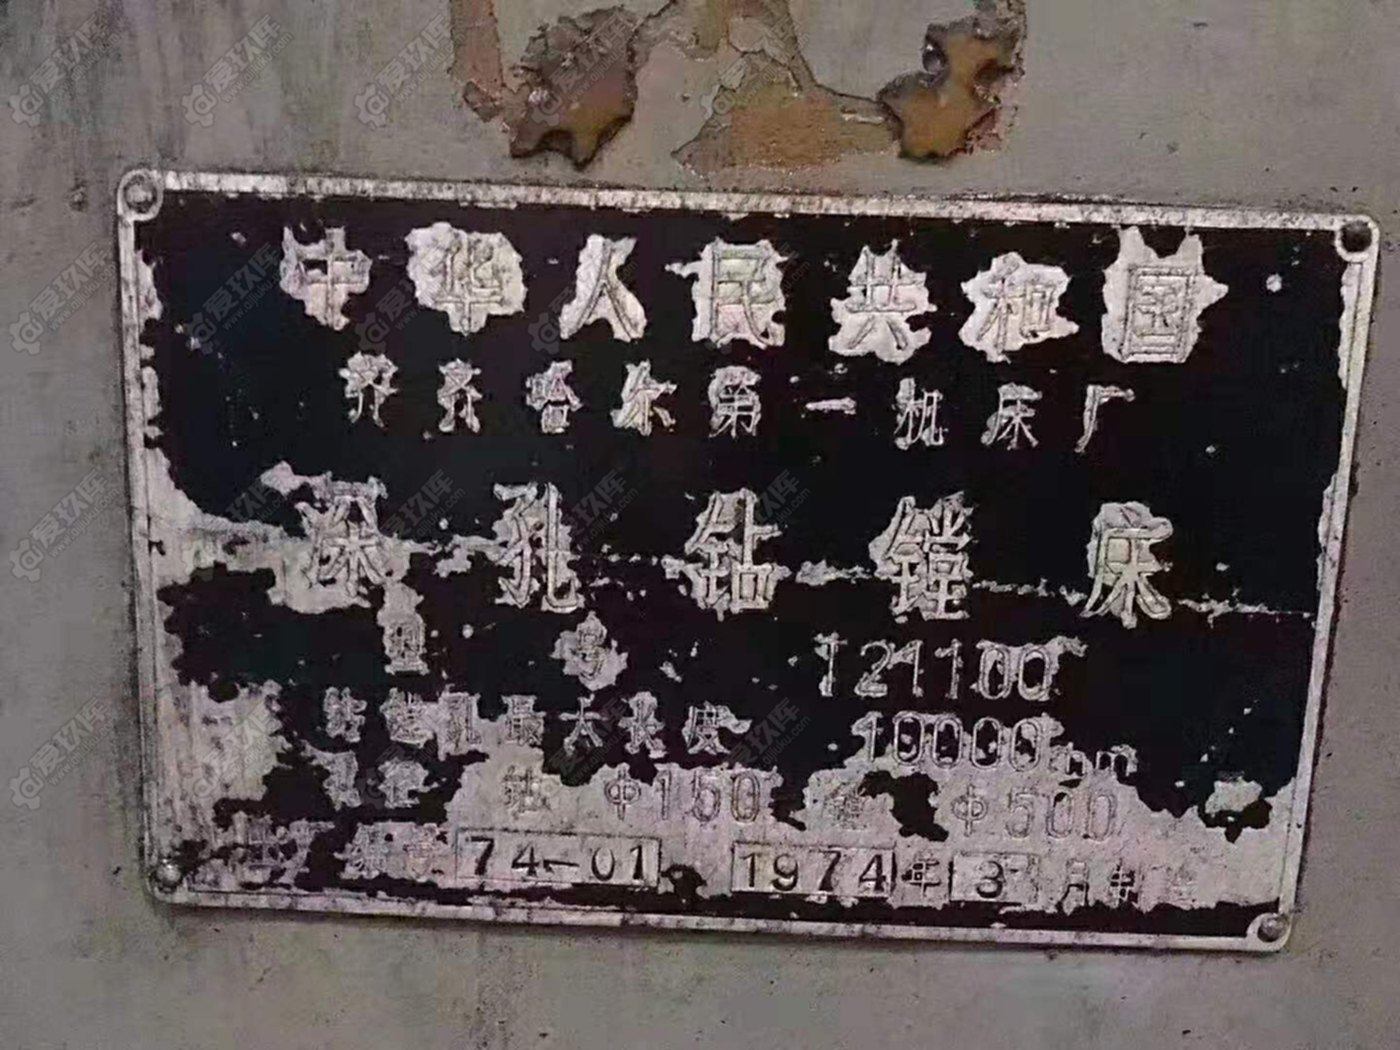 中华人民共和国
齐齐哈尔第一机床厂
深孔钻镗床
型 号 T21100
钻镗孔最大长度 10000mm
孔径 钻 Φ150 镗 Φ500
编号 74-01 1974年3月制造